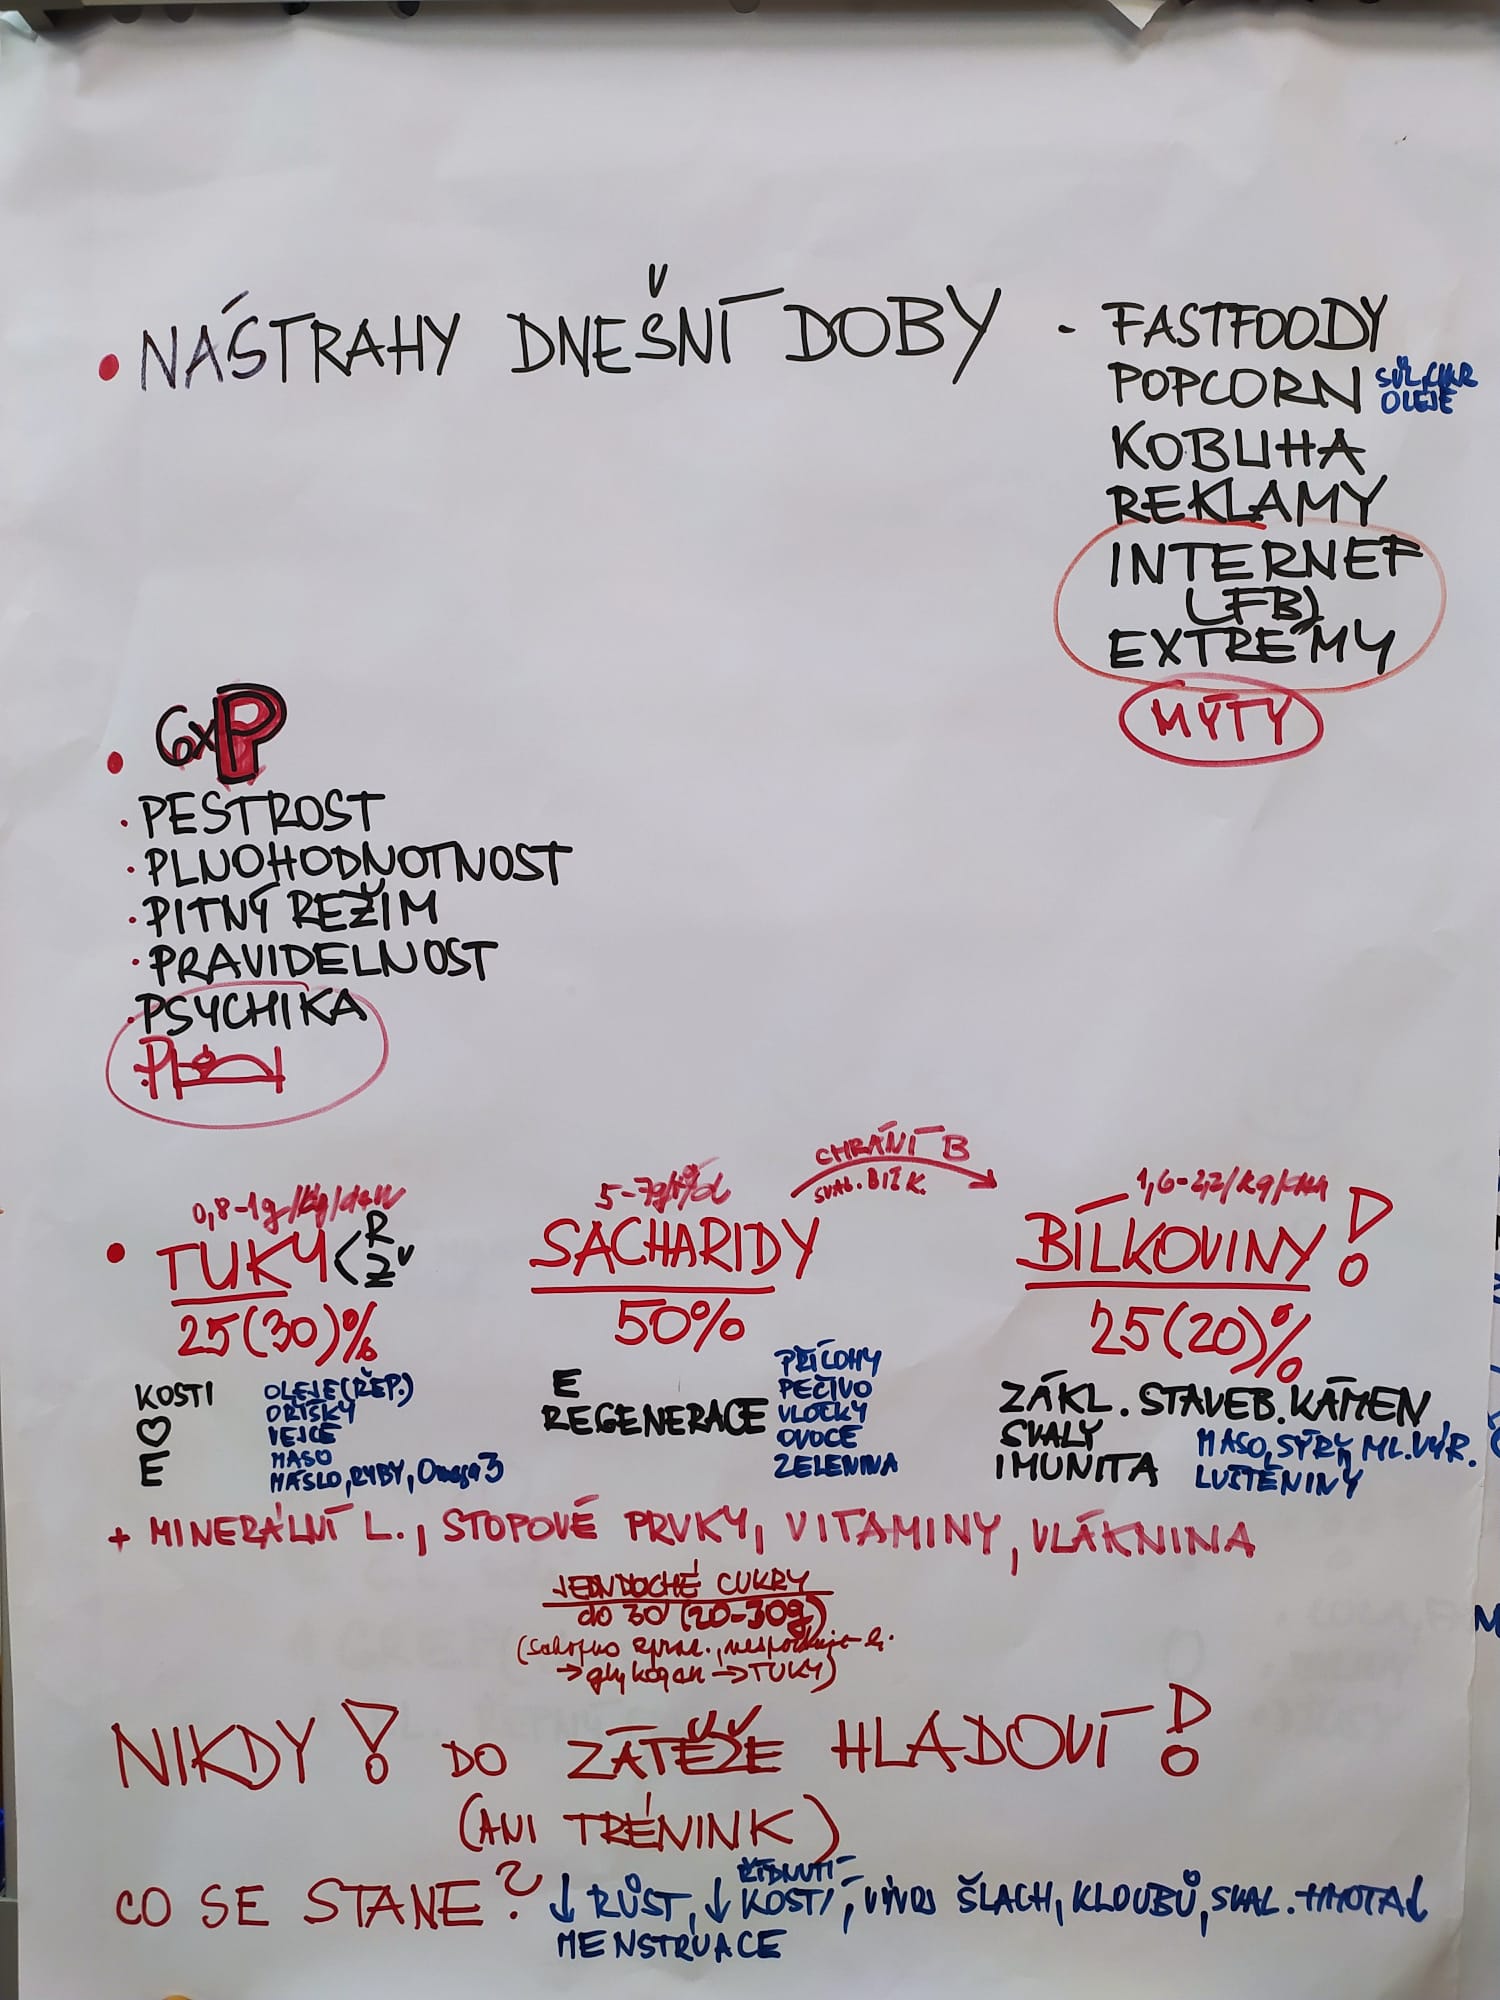 • NÁSTRAHY DNEŠNÍ DOBY - FASTFOODY
POPCORN SŮL, CUKR
OLEJE
KOBLIHA
REKLAMY
INTERNET
(FB)
EXTRÉMY
MÝTY
• 6xP
• PESTROST
• PLNOHODNOTNOST
• PITNÝ REŽIM
• PRAVIDELNOST
• PSYCHIKA
• P
0,8-1g/kg/den
• TUKY < R
Ž
25(30)%
KOSTI
♡
E
OLEJE (ŘEP.)
OŘÍŠKY
VEJCE
MASO
MÁSLO, RYBY, Omega 3
5-7g/kg/d
SACHARIDY
50%
E
REGENERACE
PŘÍLOHY
PEČIVO
VLOČKY
OVOCE
ZELENINA
CHRÁNÍ B
SVAL. BÍLK.
1,6-2,2/kg/den
BÍLKOVINY !
25(20)%
ZÁKL. STAVEB. KÁMEN
SVALY
IMUNITA
MASO, SÝRY, ML. VÝR.
LUŠTĚNINY
+ MINERÁLNÍ L., STOPOVÉ PRVKY, VITAMINY, VLÁKNINA
JEDNODUCHÉ CUKRY
do 30' (20-30g)
→ glykogen → TUKY)
NIKDY! DO ZÁTĚŽE HLADOVÍ!
(ANI TRÉNINK)
CO SE STANE? ↓ RŮST, ↓ ŘÍDNUTÍ KOSTÍ, VÝVOJ ŠLACH, KLOUBŮ, SVAL. HMOTA↓
MENSTRUACE